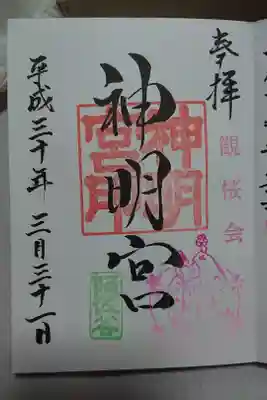 奉拝
観桜会
神明宮
神明宮印
阿佐谷
平成三十年 三月三十一日